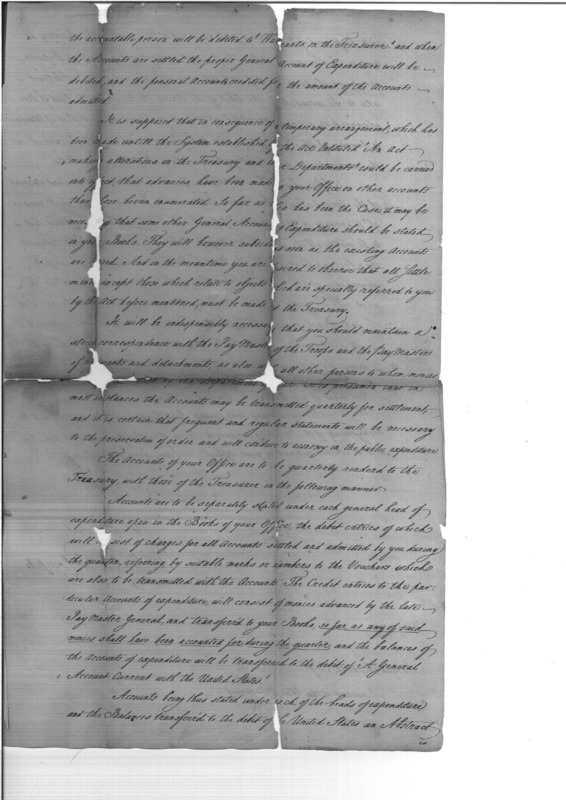 the accountable person will be debited to Warrants on the Treasurer, and when
the Accounts are settled the proper General Account of Expenditure will be
debited, and the personal Accounts credited for the amount of the Accounts
admitted.
It is supposed that in consequence of temporary arrangement, which has
been made untill the System established by the Act Entituled "An act
making alterations in the Treasury and War Departments" could be carried
into effect, that advances, have been made your Office on other accounts
than have been enumerated. So far as this has been the Case, it may be
necessary that some other General Account of Expenditure should be stated
in your Books. They will however subside as soon as the existing Accounts
are closed. And in the meantime you are desired to observe that all Settle-
ments except those which relate to objects which are specially referred to you
by the Act before mentioned, must be made at the Treasury.
It will be indispensibly necessary that you should maintain a
correspondence with the Pay Master of the Troops and the Pay Masters
of Regiments and detachments, as also with all other persons to whom monies
the Department presumed that in
most instances the Accounts may be transmitted quarterly for settlement,
and it is certain that frequent and regular statements will be necessary
to the preservation of order and will conduce to economy in the public expenditure
The Accounts of your Office are to be quarterly rendered to the
Treasury with those of the Treasurer in the following manner
Accounts are to be separately stated under each general head of
expenditure open in the Books of your Office, the debit entries of which
will consist of charges for all Accounts settled and admitted by you during
the quarter, referring by suitable marks or numbers to the Vouchers which
are also to be transmitted with the Accounts. The Credit entries to the par-
ticular Accounts of expenditure, will consist of monies advanced by the late
Pay Master General, and transfer'd to your Books, so far as any of said
monies shall have been accounted for during the quarter, and the balances of
the Accounts of expenditure will be transferred to the debit of "A General
Account Current with the United States."
Accounts being thus stated under each of the heads of expenditure
and the Balances transfer'd to the debit of the United States an Abstract